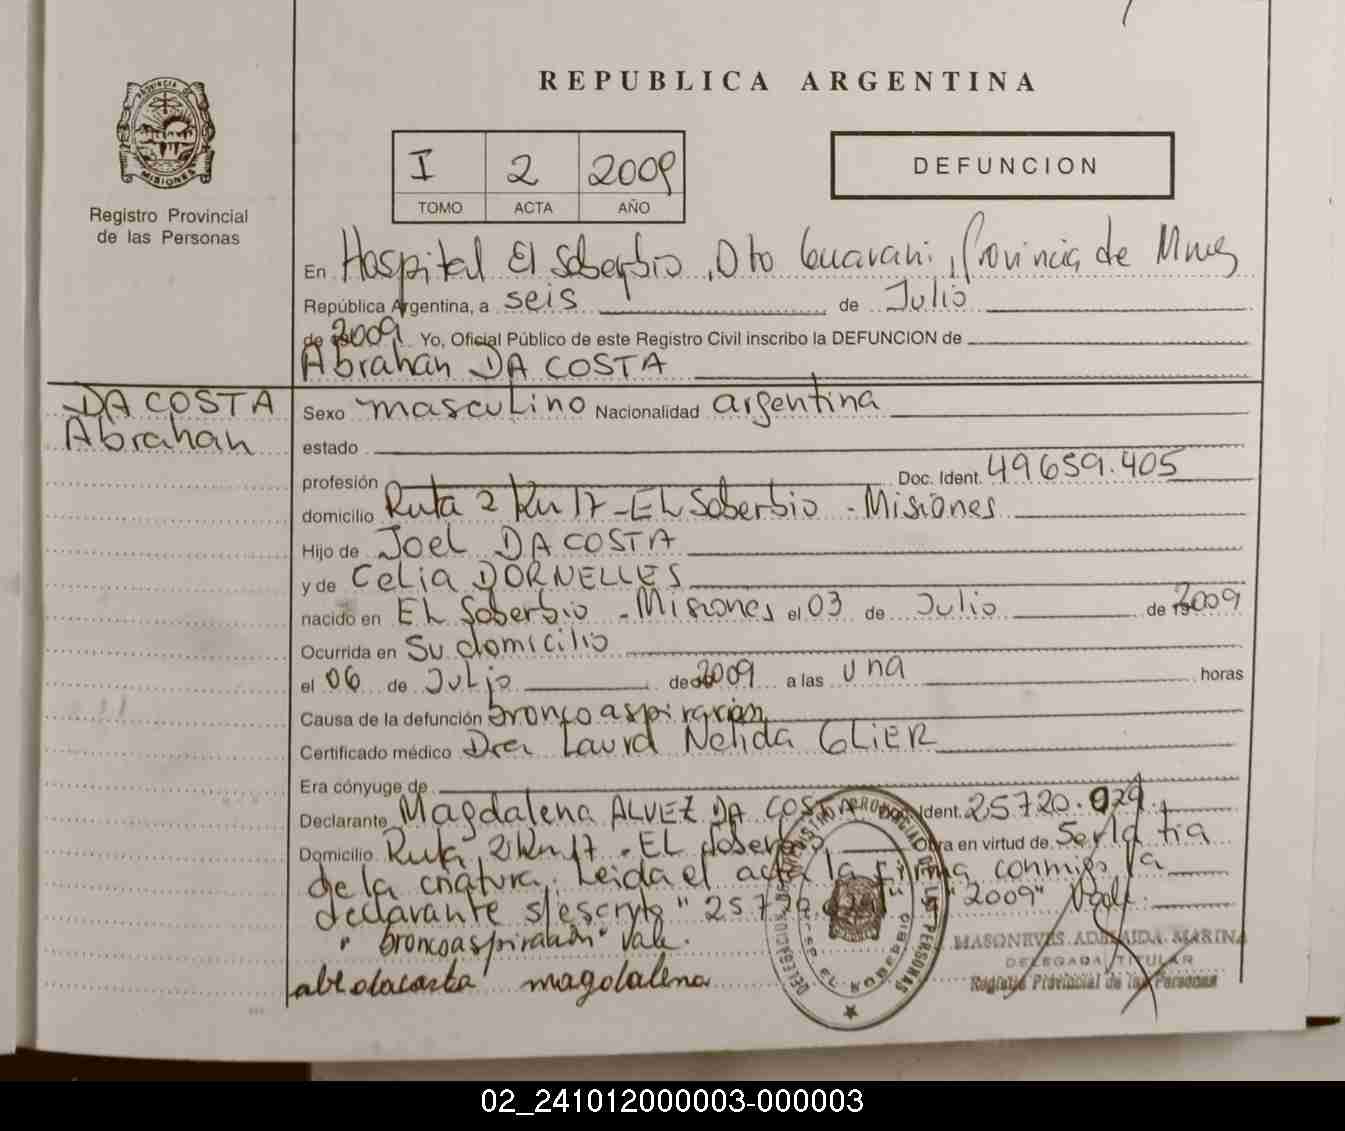 REPUBLICA ARGENTINA
PROVINCIA DE
MISIONES
Registro Provincial
de las Personas
I 2 2009
TOMO ACTA AÑO
DEFUNCION
En Hospital El Soberbio, Dto Guarani, Provincia de Mnes
República Argentina, a seis de Julio
de 2009 Yo, Oficial Público de este Registro Civil inscribo la DEFUNCION de
Abrahan DA COSTA
DA COSTA
Abrahan
Sexo masculino Nacionalidad argentina
estado
profesión Doc. Ident. 49659.405
domicilio Ruta 2 Km 17 - EL Soberbio - Misiones
Hijo de Joel DA COSTA
y de Celia DORNELLES
nacido en EL Soberbio - Misiones el 03 de Julio de 2009
Ocurrida en Su domicilio
el 06 de Julio de 2009 a las una horas
Causa de la defunción broncoaspiración
Certificado médico Dra Laura Nelida GLIER
Era cónyuge de
Declarante Magdalena ALVEZ DA COSTA Doc. Ident. 25720.029
Domicilio Ruta 2 Km 17 - EL Soberbio Obra en virtud de Ser la tia
de la criatura. Leida el acta la firma conmigo la
declarante s/escrito "25720.029" "2009" Vale.
" broncoaspiración" Vale.
MASONEVES ADELAIDA MARINA
DELEGADA TITULAR
Registro Provincial de las Personas
magdalena
02_241012000003-000003